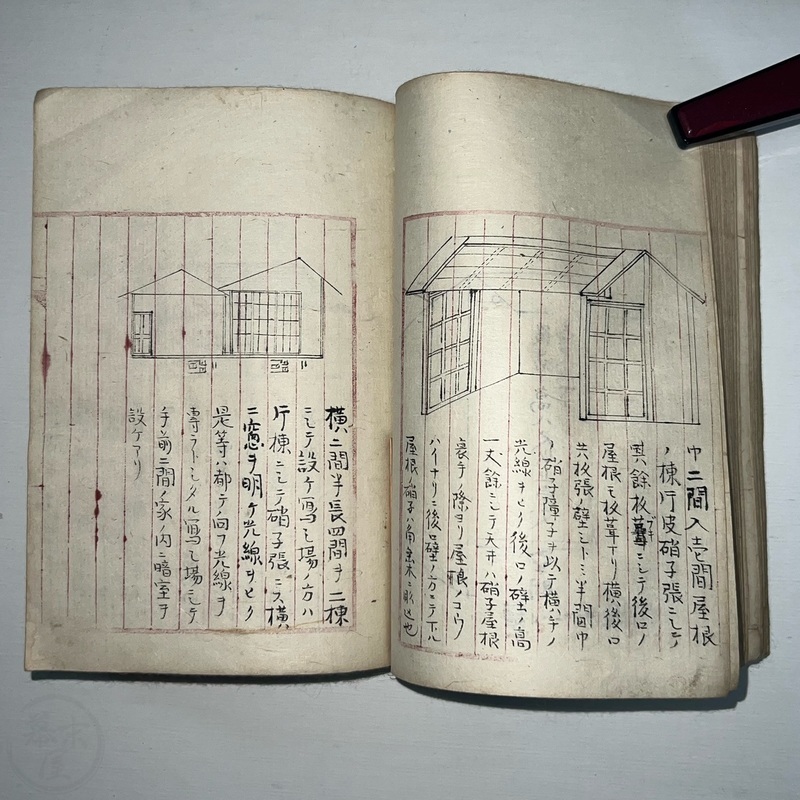 巾二間入壱間屋根
ノ棟片皮硝子張ニシテ
其餘板葺ブキニシテ後口ノ
屋根モ板葺ナリ横ハ後口
共板張ノ壁ニ半間巾
ノ硝子障子ヲ以テ横ハ手ノ
光線ヲヒク後口ノ壁ノ高
一丈餘ニシテ天井ハ硝子屋根
裏手ノ際ヨリ屋根ノコウ
ハイナリニ後口壁ノ方ニテ下ル
屋根ノ硝子ハ角金木ニ彫込也
横二間半長四間ヲ二棟
ニシテ設ケ寫シ場ノ方ハ
片棟ニシテ硝子張ニス横
ニ窓ヲ明ケ光線ヲヒク
是等ハ都テ向フ光線ヲ
専ラトシタル寫シ場ニシテ
手前二間ノ家ノ内ニ暗室ヲ
設ケアリ